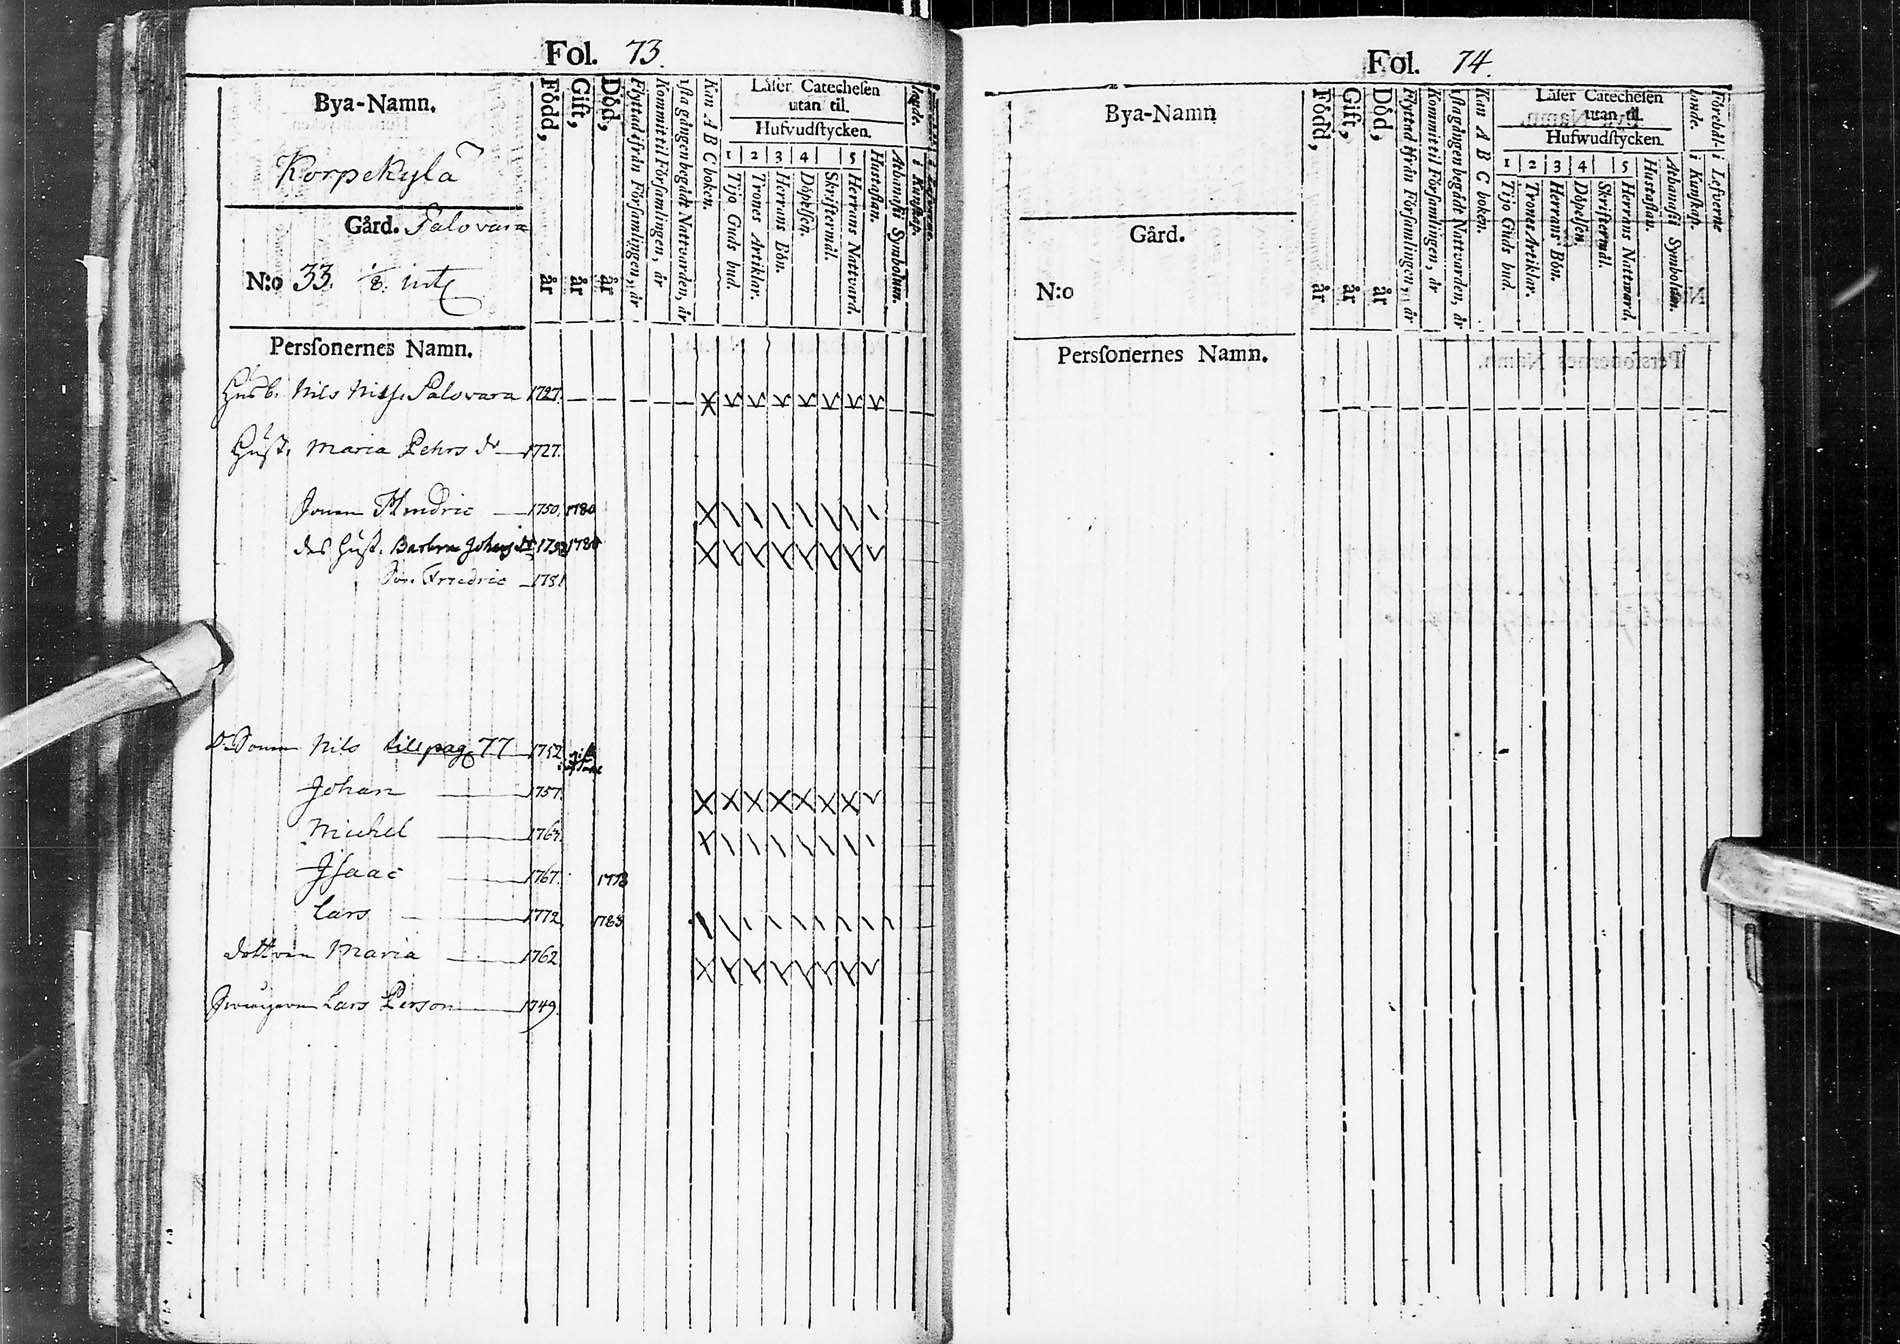 Fol. 73.
Bya-Namn.
Korpekylä
Gård. Salovara
N:o 33.
Personernes Namn.
Född, år
Gift, år
Död, år
Flyttad ifrån Församlingen, år
Kommit til Församlingen, år
1sta gången begådt Nattvarden, år
Kan A B C boken.
Läser Catechesen
utan til.
Hufvudstycken.
1 2 3 4 5
Tijo Guds bud.
Trones Artiklar.
Herrans Bön.
Döpelsen.
Skriftermål.
Herrans Nattvard.
Hustaflan.
Athanasii Symbolum.
i Kunskap.
Husb. Nils Nilss. Salovara 1727.
Hust. Maria Pehrs dr 1727.
Sonen Hindric 1750. 1780
des Hust. Barbra Johans dr 1780
Son. Friedric 1781
Sonen Nils till pag. 77 1752
Johan 1757.
Michel
Isaac 1767. 1778
Lars 1772. 1785
dottren Maria 1762
Lars Person 1749.
Fol. 74.
Bya-Namn
Gård.
N:o
Personernes Namn.
Född, år
Gift, år
Död, år
Flyttad ifrån Församlingen, år
Kommit til Församlingen, år
1sta gången begådt Nattvarden, år
Kan A B C boken.
Läser Catechesen
utan til.
Hufwudstycken.
1 2 3 4 5
Tijo Guds bud.
Trones Artiklar.
Herrans Bön.
Döpelsen.
Skriftermål.
Herrans Nattward.
Hustaflan.
Athanasii Symbolum.
Förehål-
lande.
i Kunskap.
i Lefverne